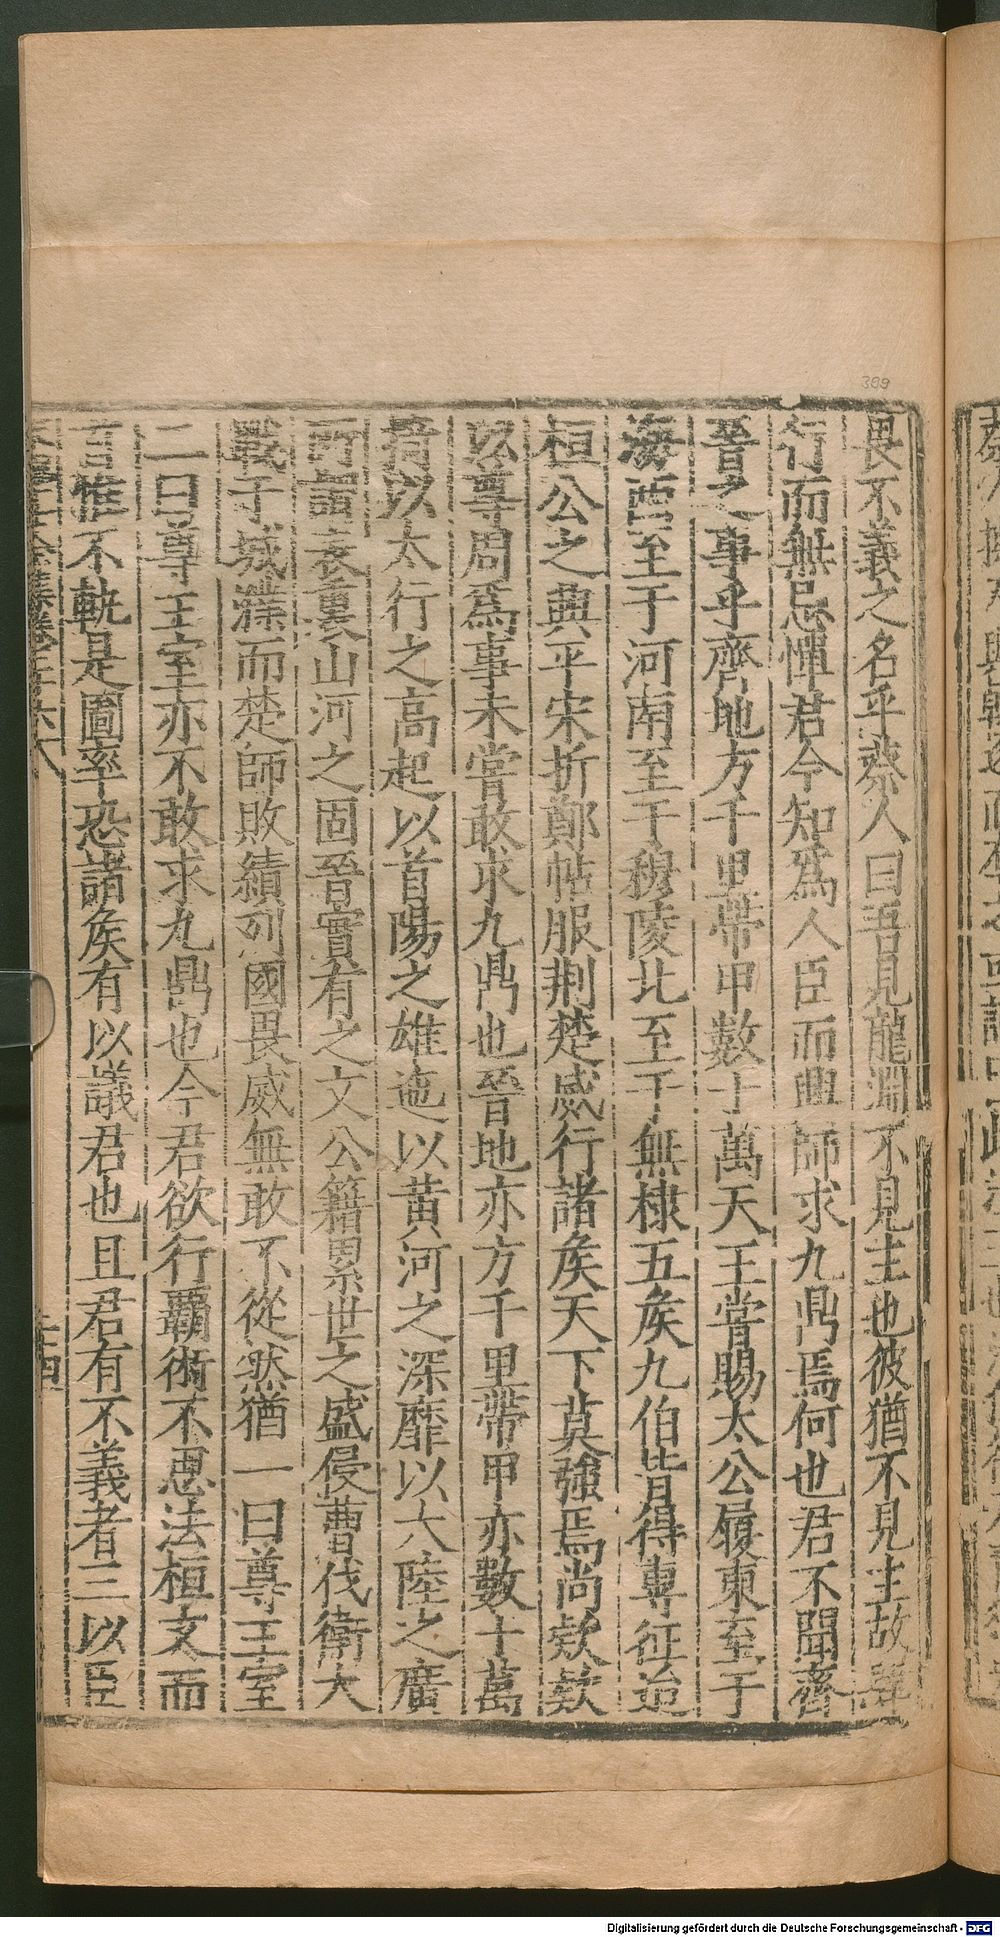 畏不義之名乎蔡人曰吾見龍淵不見主也彼猶不見主故
行而無忌憚君今知爲人臣而興師求九鼎焉何也君不聞齊
晉之事乎齊地方千里帶甲數十萬天王嘗賜太公履東至于
海西至于河南至于穆陵北至于無棣五矦九伯皆得專征迨
桓公之興平宋折鄭帖服荆楚威行諸矦天下莫強焉尚欸欸
以尊周爲事未嘗敢求九鼎也晉地亦方千里帶甲亦數十萬
掎以太行之高起以首陽之雄迤以黄河之深靡以六陸之廣
所謂表裏山河之固晉實有之文公籍累世之盛侵曹伐衛大
戰于城濮而楚師敗績列國畏威無敢不從然猶一曰尊王室
二曰尊王室亦不敢求九鼎也今君欲行覇術不惪法桓文而
言惟不軌是圖卒恐諸矦有以議君也且君有不義者三以臣
卷三十六
二十四
389
Digitalisierung gefördert durch die Deutsche Forschungsgemeinschaft - DFG